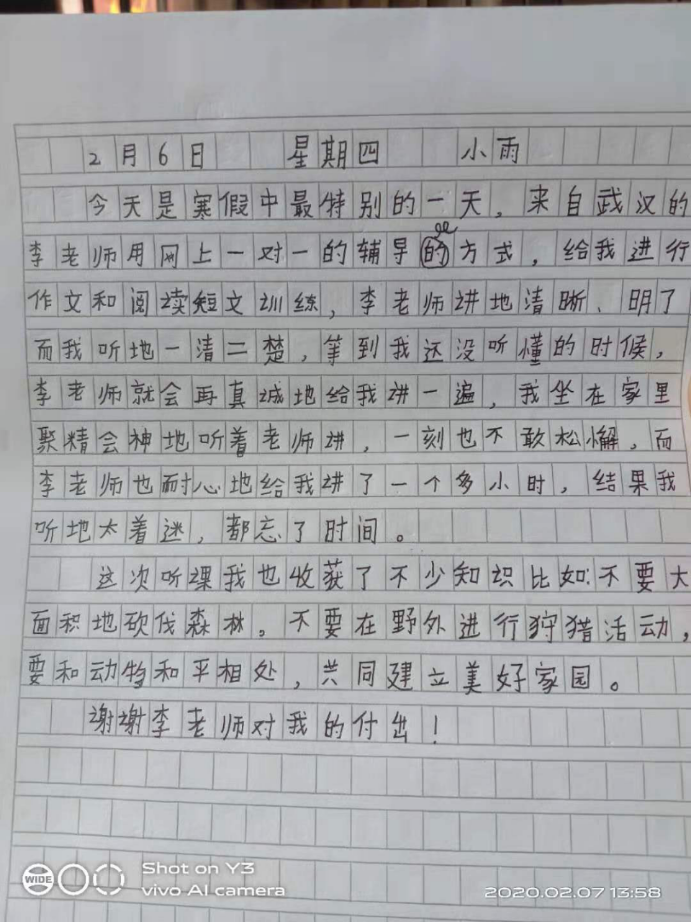 2月6日 星期四 小雨
今天是寒假中最特别的一天，来自武汉的
李老师用网上一对一的辅导的方式，给我进行
作文和阅读短文训练，李老师讲地清晰、明了
而我听地一清二楚，等到我还没听懂的时候，
李老师就会再真诚地给我讲一遍，我坐在家里
聚精会神地听着老师讲，一刻也不敢松懈，而
李老师也耐心地给我讲了一个多小时，结果我
听地太着迷，都忘了时间。
这次听课我也收获了不少知识比如:不要大
面积地砍伐森林。不要在野外进行狩猎活动，
要和动物和平相处，共同建立美好家园。
谢谢李老师对我的付出！
WIDE
Shot on Y3
vivo AI camera
2020.02.07 13:58